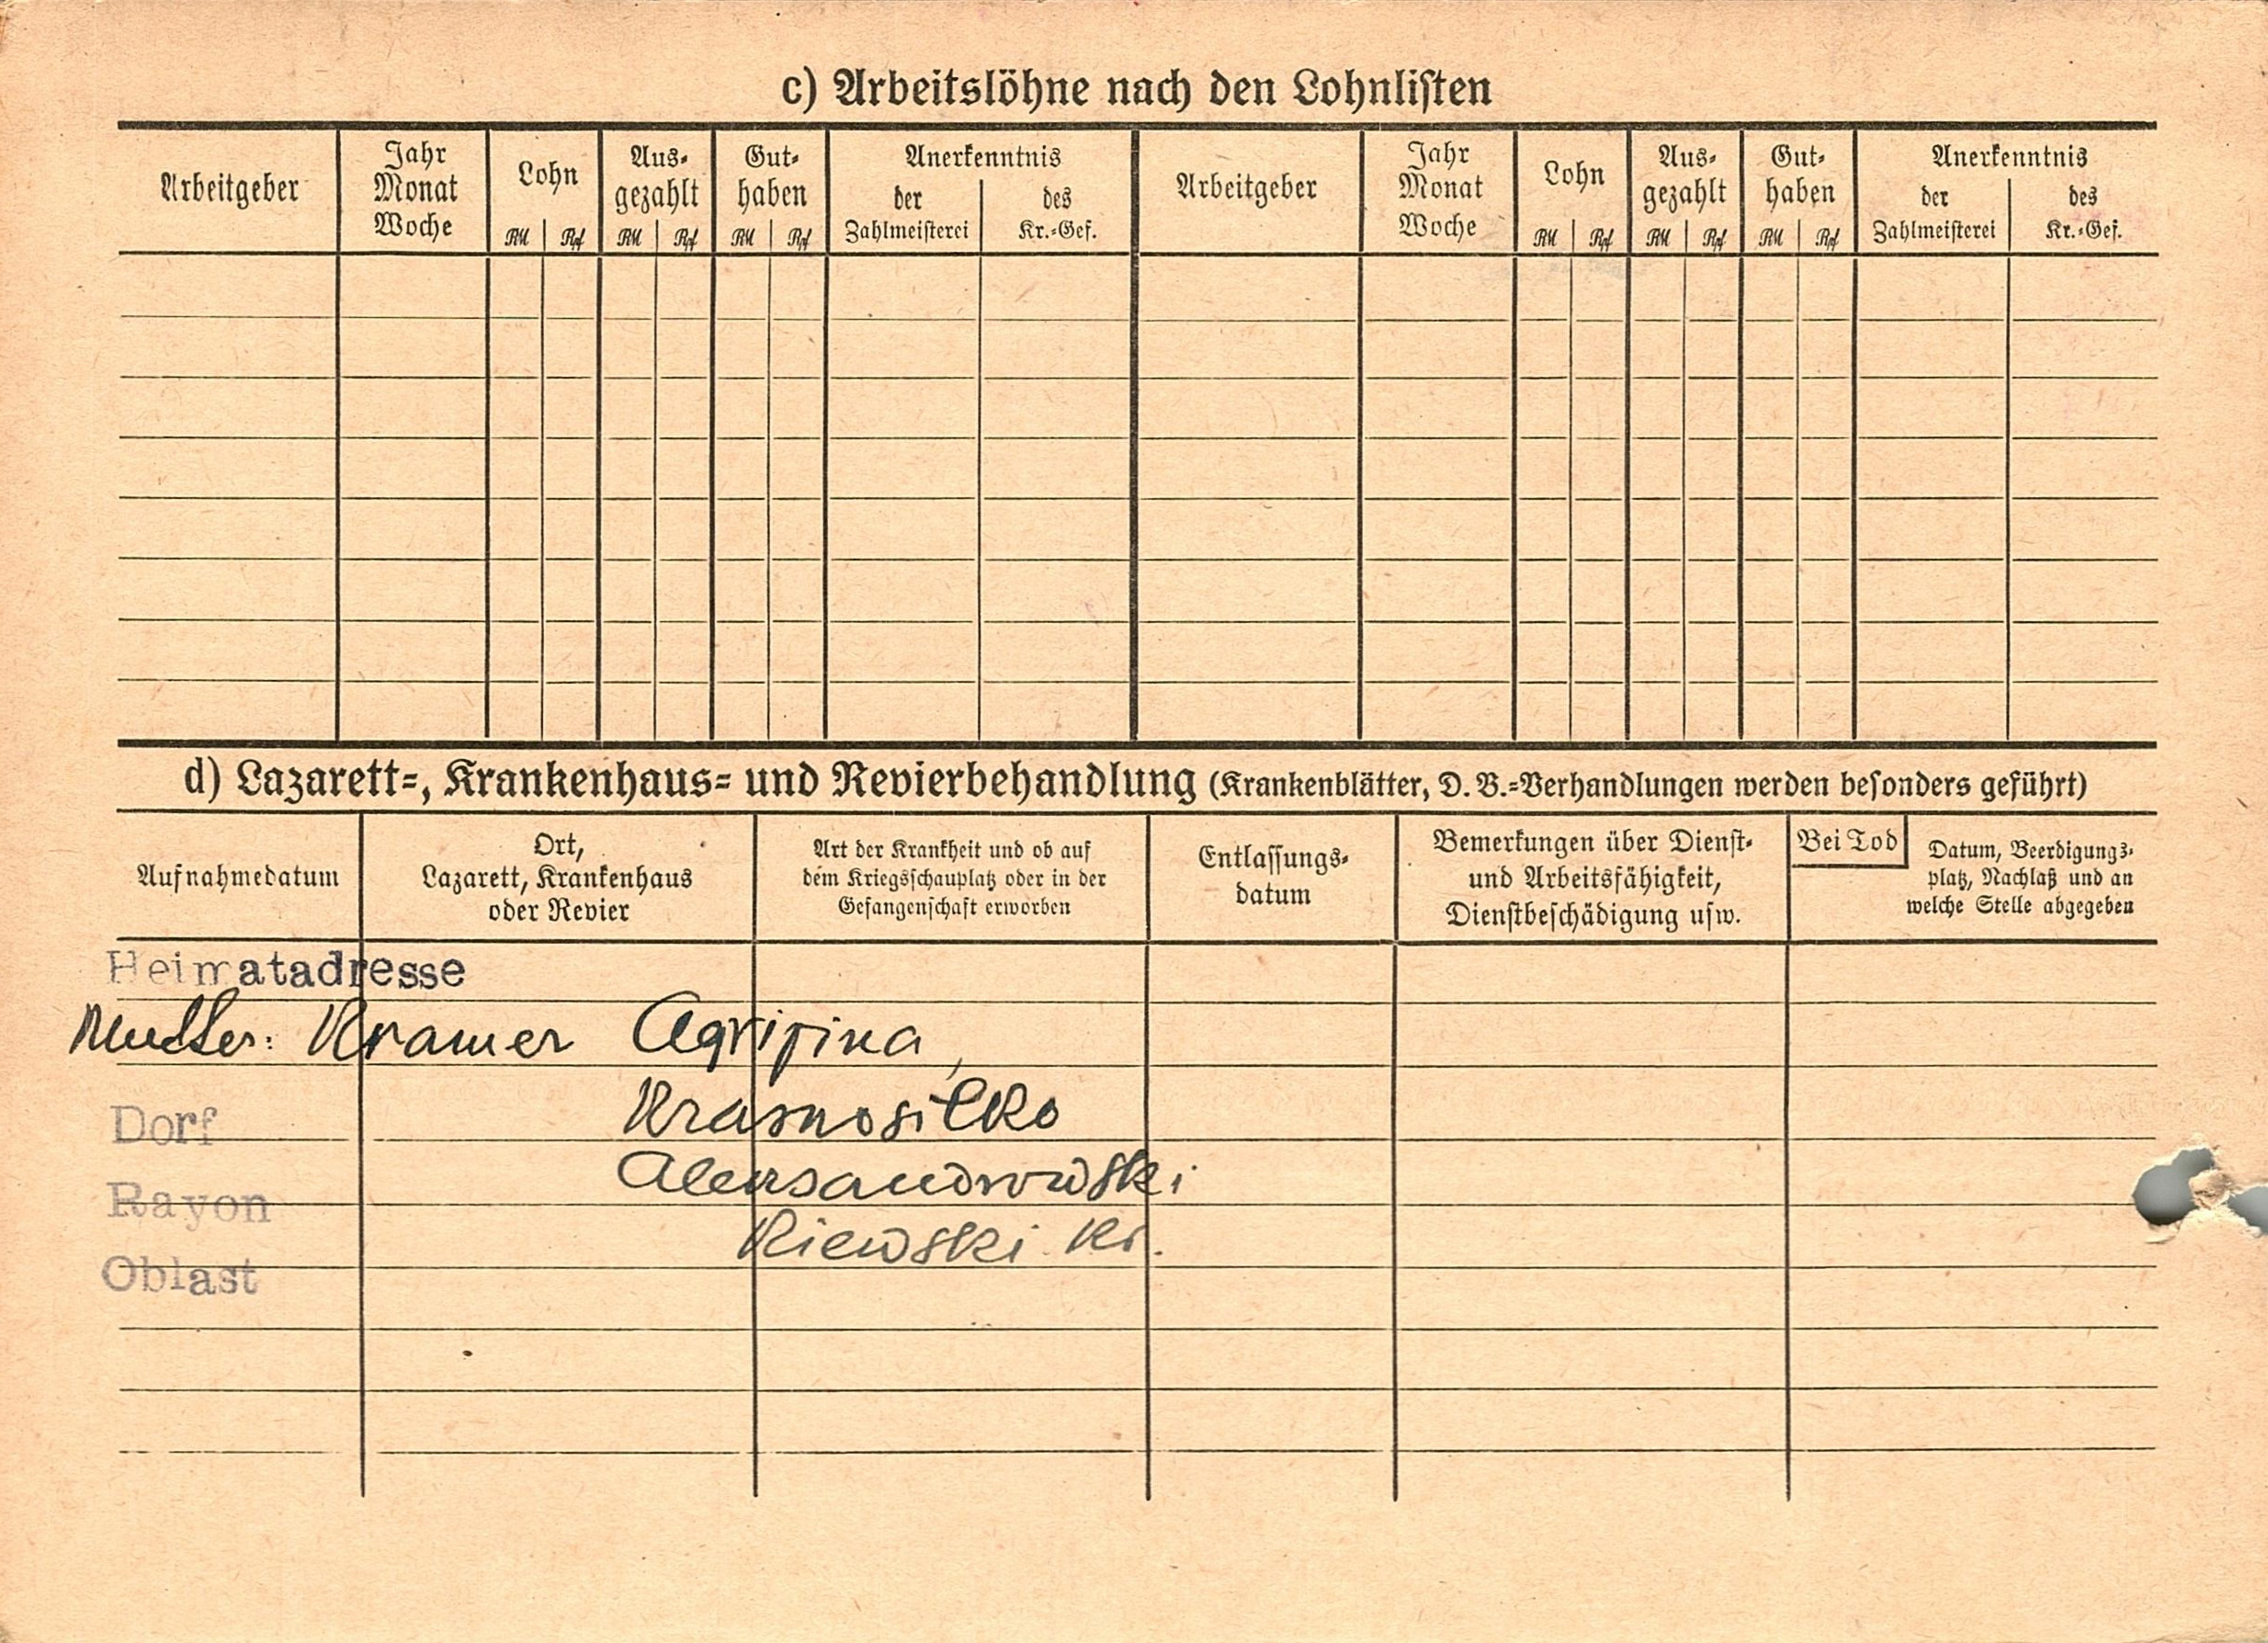 c) Arbeitslöhne nach den Lohnlisten
Arbeitgeber
Jahr
Monat
Woche
Lohn
RM Rpf
Aus-
gezahlt
RM Rpf
Gut-
haben
RM Rpf
Anerkenntnis
der
Zahlmeisterei
des
Kr.-Gef.
Arbeitgeber
Jahr
Monat
Woche
Lohn
RM Rpf
Aus-
gezahlt
RM Rpf
Gut-
haben
RM Rpf
Anerkenntnis
der
Zahlmeisterei
des
Kr.-Gef.
d) Lazarett-, Krankenhaus- und Revierbehandlung (Krankenblätter, D. B.-Verhandlungen werden besonders geführt)
Aufnahmedatum
Ort,
Lazarett, Krankenhaus
oder Revier
Art der Krankheit und ob auf
dem Kriegsschauplatz oder in der
Gefangenschaft erworben
Entlassungs-
datum
Bemerkungen über Dienst-
und Arbeitsfähigkeit,
Dienstbeschädigung usw.
Bei Tod
Datum, Beerdigungs-
platz, Nachlaß und an
welche Stelle abgegeben
Heimatadresse
Mutter: Kramer Agripina,
Dorf Krasnosilko
Rayon Aleksandrowski
Oblast Kiewski Kr.